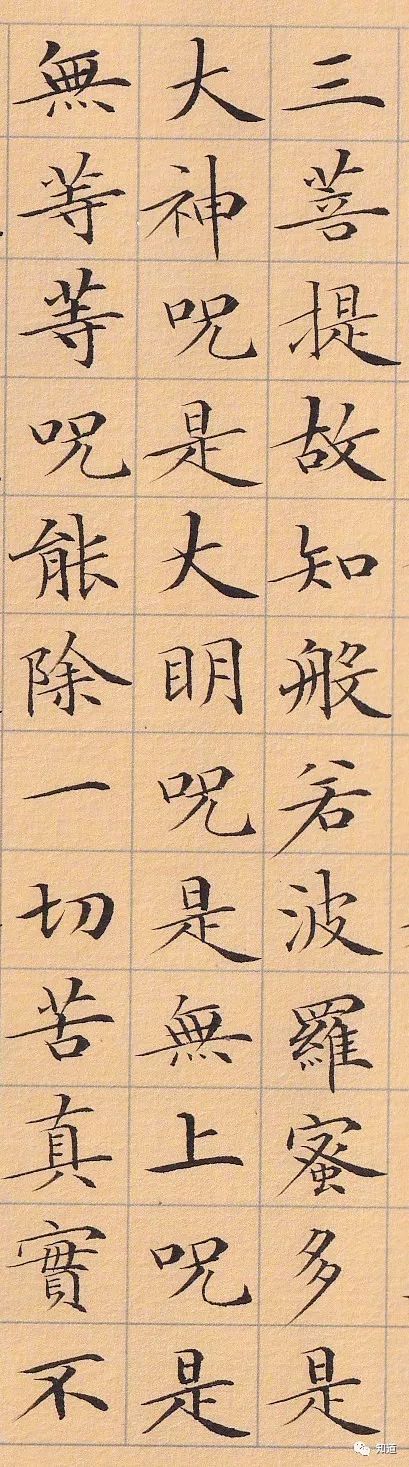 三菩提故知般若波羅蜜多是
大神呪是大明呪是無上呪是
無等等呪能除一切苦真實不
知道